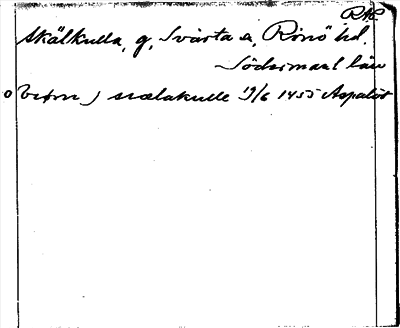 RAP
Skälkulla, g, Svärta s, Rönö hd.
Södermanl län
o biørn j scælakulle 19/6 1455 Aspalöt